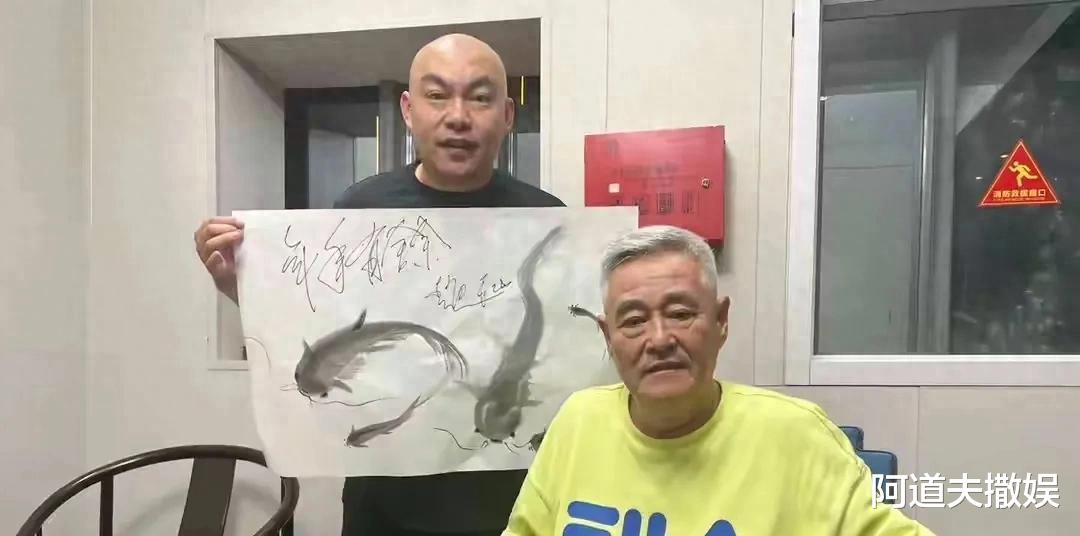 年年有餘
消防救援窗口
FILA
阿道夫撒娱